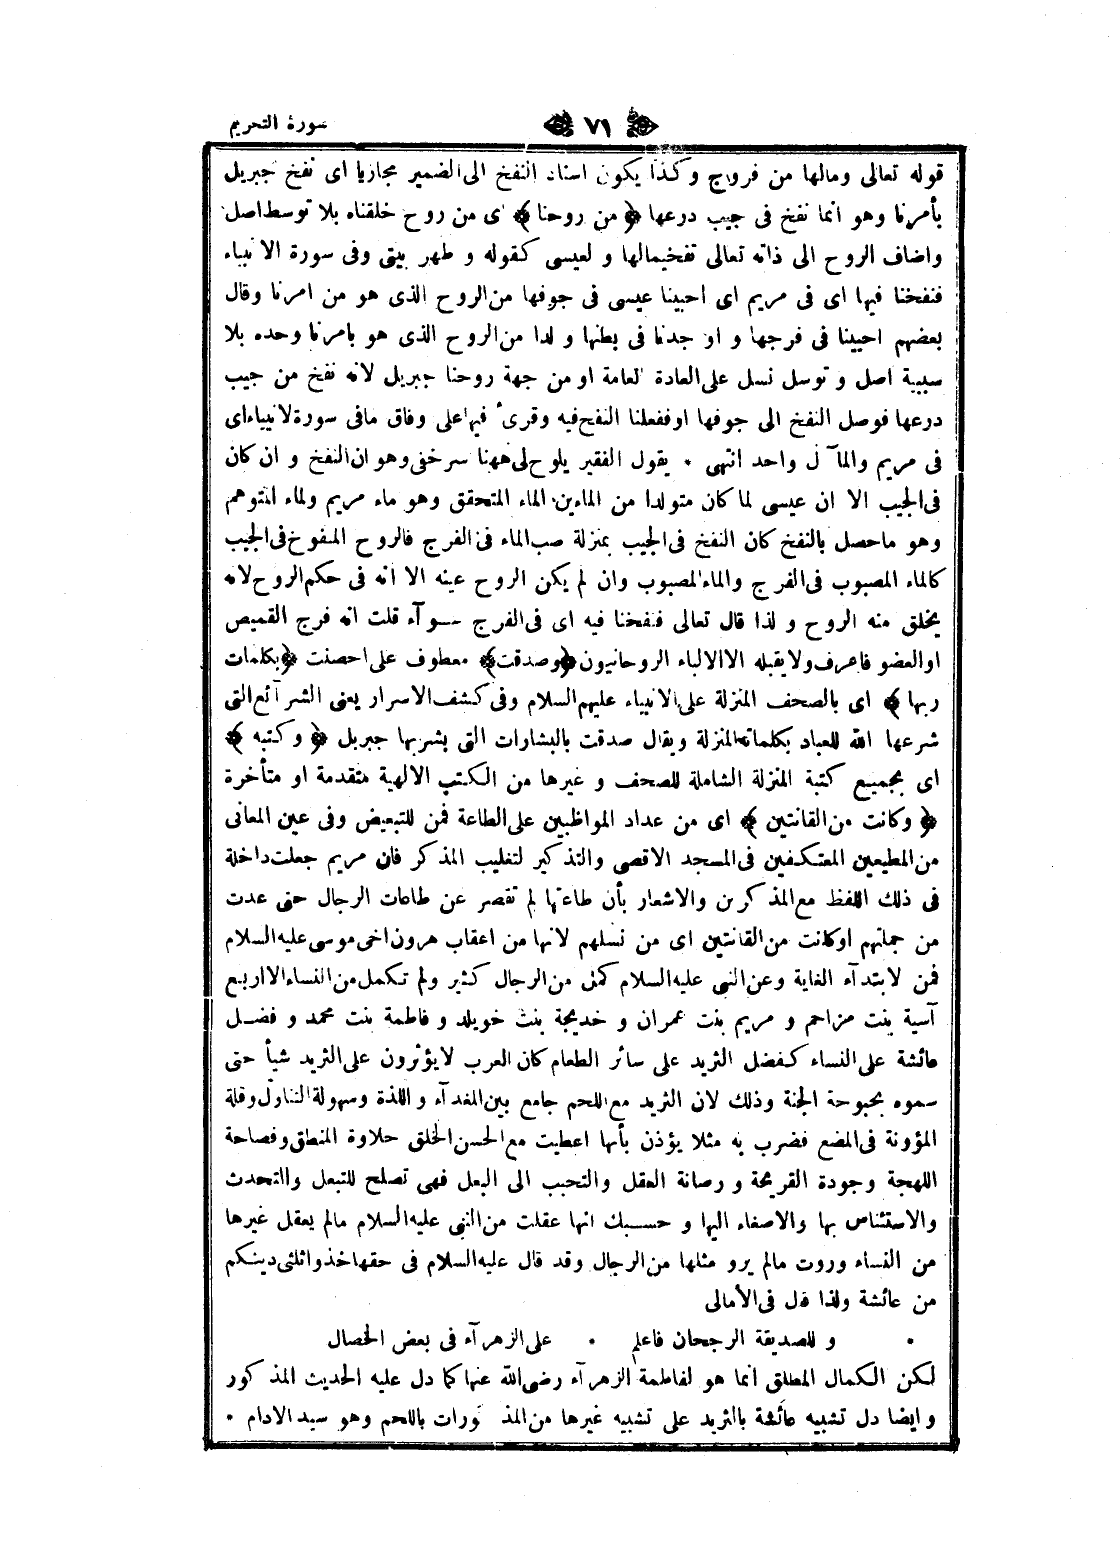 سورة التحريم
﴿ ٧١ ﴾
قوله تعالى ومالها من فروج وكذا يكون اسناد النفخ الى الضمير مجازيا اى نفخ جبريل
بأمرنا وهو انما نفخ فى جيب درعها ﴿ من روحنا ﴾ اى من روح خلقناه بلا توسط اصل
واضاف الروح الى ذاته تعالى تفخيمالها و لعيسى كقوله و طهر بيتى وفى سورة الانبياء
فنفخنا فيها اى فى مريم اى احيينا عيسى فى جوفها من الروح الذى هو من امرنا وقال
بعضهم احيينا فى فرجها و اوجدنا فى بطنها و لدا من الروح الذى هو بامرنا وحده بلا
سببية اصل و توسل نسل على العادة العامة او من جهة روحنا جبريل لانه نفخ من جيب
درعها فوصل النفخ الى جوفها اوففعلنا النفخ فيه وقرىء فيها على وفاق مافى سورة لانبياء اى
فى مريم والمآ ل واحد انتهى • يقول الفقير يلوح لى ههنا سرخفى وهو ان النفخ و ان كان
فى الجيب الا ان عيسى لما كان متولدا من الماءين الماء المتحقق وهو ماء مريم ولماء المتوهم
وهو ماحصل بالنفخ كان النفخ فى الجيب بمنزلة صب الماء فى الفرج فالروح المنفوخ فى الجيب
كالماء المصبوب فى الفرج والماء المصبوب وان لم يكن الروح عينه الا انه فى حكم الروح لانه
يخلق منه الروح و لذا قال تعالى فنفخنا فيه اى فى الفرج سوآء قلت انه فرج القميص
او العضو فاعرف ولا يقبله الا الالباء الروحانيون ﴿وصدقت﴾ معطوف على احصنت ﴿بكلمات
ربها ﴾ اى بالصحف المنزلة على الانبياء عليهم السلام وفى كشف الاسرار يعنى الشر آئع التى
شرعها الله للعباد بكلماته المنزلة ويقال صدقت بالبشارات التى بشربها جبريل ﴿ و كتبه ﴾
اى بجميع كتبة المنزلة الشاملة للصحف و غيرها من الكتب الالهية متقدمة او متأخرة
﴿ وكانت من القانتين ﴾ اى من عداد المواظبين على الطاعة فمن للتبعيض وفى عين المعانى
من المطيعين المعتكفين فى المسجد الاقصى والتذكير لتغليب المذكر فان مريم جعلت داخلة
فى ذلك اللفظ مع المذكرين والاشعار بأن طاعتها لم تقصر عن طاعات الرجال حتى عدت
من جملتهم اوكانت من القانتين اى من نسلهم لانها من اعقاب هرون اخى موسى عليه السلام
فمن لابتدآء الغاية وعن النبى عليه السلام كمل من الرجال كثير ولم تكمل من النساء الا اربع
آسية بنت مزاحم و مريم بنت عمران و خديجة بنت خويلد و فاطمة بنت محمد و فضل
عائشة على النساء كفضل الثريد على سائر الطعام كان العرب لا يؤثرون على الثريد شيأ حتى
سموه بحبوحة الجنة وذلك لان الثريد مع اللحم جامع بين الغدآء و اللذة وسهولة التناول وقلة
المؤونة فى المضغ فضرب به مثلا يؤذن بأنها اعطيت مع الحسن الخلق حلاوة المنطق وفصاحة
اللهجة وجودة القريحة و رصانة العقل والتحبب الى البعل فهى تصلح للتبعل والتحدث
والاستئناس بها والاصفاء اليها و حسبك انها عقلت من النبى عليه السلام مالم يعقل غيرها
من النساء وروت مالم يرو مثلها من الرجال وقد قال عليه السلام فى حقها خذوا ثلثى دينكم
من عائشة ولذا قال فى الأمالى
• و للصديقة الرجحان فاعلم • على الزهر آء فى بعض الخصال
لكن الكمال المطلق انما هو لفاطمة الزهر آء رضى الله عنها كما دل عليه الحديث المذكور
و ايضا دل تشبيه عائشة بالثريد على تشبيه غيرها من المذ كورات باللحم وهو سيد الادام •